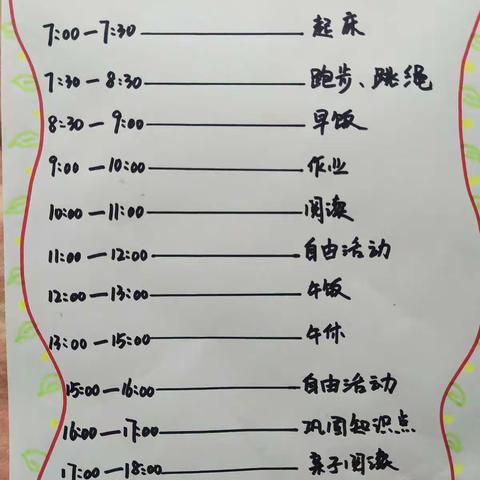 7:00—7:30 ———— 起床
7:30—8:30 ———— 跑步、跳绳
8:30—9:00 ———— 早饭
9:00—10:00 ———— 作业
10:00—11:00 ———— 阅读
11:00—12:00 ———— 自由活动
12:00—13:00 ———— 午饭
13:00—15:00 ———— 午休
15:00—16:00 ———— 自由活动
16:00—17:00 ———— 巩固知识点
17:00—18:00 ———— 亲子阅读